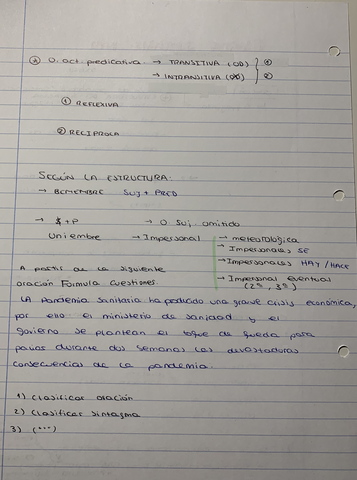 * O. act. predicativa → TRANSITIVA (OD) } ①
→ INTRANSITIVA (OD) } ②
① REFLEXIVA
② RECIPROCA
SEGÚN LA ESTRUCTURA:
→ BIMEMBRE SUJ + PRED
→ S + P → O Suj. omitido
Uniembre → Impersonal → meteorológica
→ Impersonales SE
→ Impersonales HAY / HACE
→ Impersonal eventual
(2ª, 3ª)
A partir de la siguiente
oración Formula Cuestiones.
LA Pandemia Sanitaria ha producido una grande Crisis económica,
por ello el ministerio de sanidad y el
Gobierno se plantean el toque de queda para
paliar durante dos semanas las devastadoras
consecuencias de la pandemia.
1) Clasificar oración
2) Clasificar sintagma
3) (...)